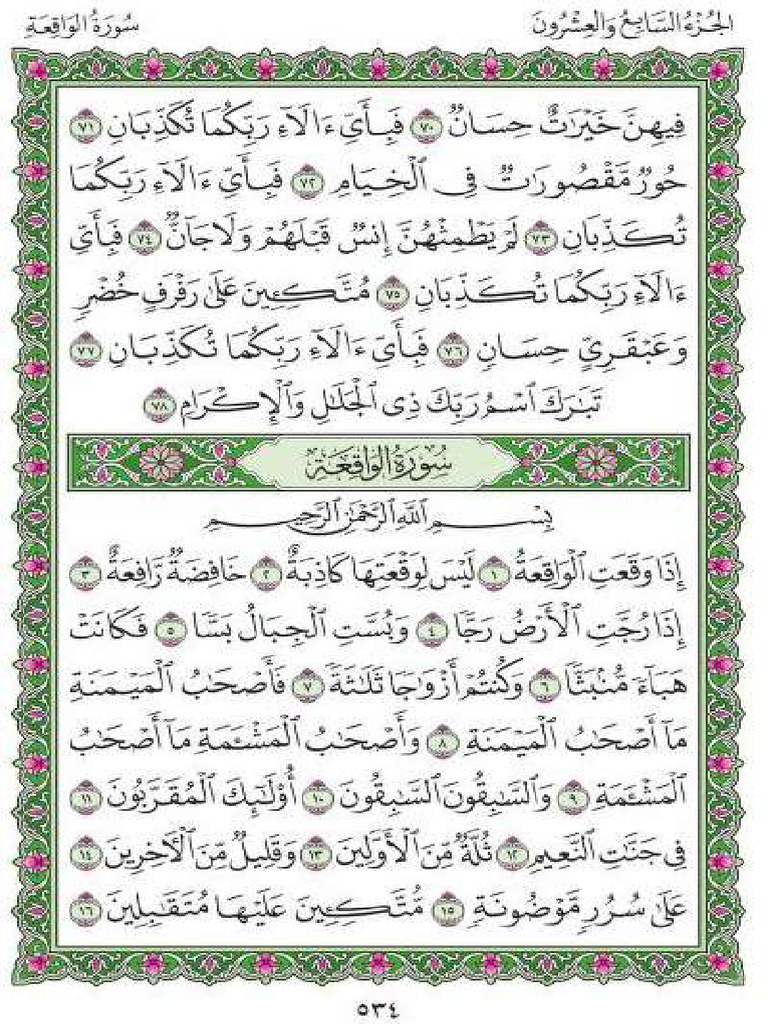 الجُزْءُ السَّابِعُ وَالعِشْرُونَ
سُورَةُ الوَاقِعَةِ
فِيهِنَّ خَيْرَٰتٌ حِسَانٌ ٧٠ فَبِأَيِّ ءَالَآءِ رَبِّكُمَا تُكَذِّبَانِ ٧١
حُورٌ مَّقْصُورَٰتٌ فِي ٱلْخِيَامِ ٧٢ فَبِأَيِّ ءَالَآءِ رَبِّكُمَا
تُكَذِّبَانِ ٧٣ لَمْ يَطْمِثْهُنَّ إِنسٌ قَبْلَهُمْ وَلَا جَآنٌّ ٧٤ فَبِأَيِّ
ءَالَآءِ رَبِّكُمَا تُكَذِّبَانِ ٧٥ مُتَّكِـِٔينَ عَلَىٰ رَفْرَفٍ خُضْرٍ
وَعَبْقَرِيٍّ حِسَانٍ ٧٦ فَبِأَيِّ ءَالَآءِ رَبِّكُمَا تُكَذِّبَانِ ٧٧
تَبَٰرَكَ ٱسْمُ رَبِّكَ ذِي ٱلْجَلَٰلِ وَٱلْإِكْرَامِ ٧٨
سُورَةُ الوَاقِعَةِ
بِسْمِ ٱللَّهِ ٱلرَّحْمَٰنِ ٱلرَّحِيمِ
إِذَا وَقَعَتِ ٱلْوَاقِعَةُ ١ لَيْسَ لِوَقْعَتِهَا كَاذِبَةٌ ٢ خَافِضَةٌ رَّافِعَةٌ ٣
إِذَا رُجَّتِ ٱلْأَرْضُ رَجًّا ٤ وَبُسَّتِ ٱلْجِبَالُ بَسًّا ٥ فَكَانَتْ
هَبَآءً مُّنۢبَثًّا ٦ وَكُنتُمْ أَزْوَٰجًا ثَلَٰثَةً ٧ فَأَصْحَٰبُ ٱلْمَيْمَنَةِ
مَآ أَصْحَٰبُ ٱلْمَيْمَنَةِ ٨ وَأَصْحَٰبُ ٱلْمَشْـَٔمَةِ مَآ أَصْحَٰبُ
ٱلْمَشْـَٔمَةِ ٩ وَٱلسَّٰبِقُونَ ٱلسَّٰبِقُونَ ١٠ أُو۟لَٰٓئِكَ ٱلْمُقَرَّبُونَ ١١
فِي جَنَّٰتِ ٱلنَّعِيمِ ١٢ ثُلَّةٌ مِّنَ ٱلْأَوَّلِينَ ١٣ وَقَلِيلٌ مِّنَ ٱلْءَاخِرِينَ ١٤
عَلَىٰ سُرُرٍ مَّوْضُونَةٍ ١٥ مُّتَّكِـِٔينَ عَلَيْهَا مُتَقَٰبِلِينَ ١٦
٥٣٤